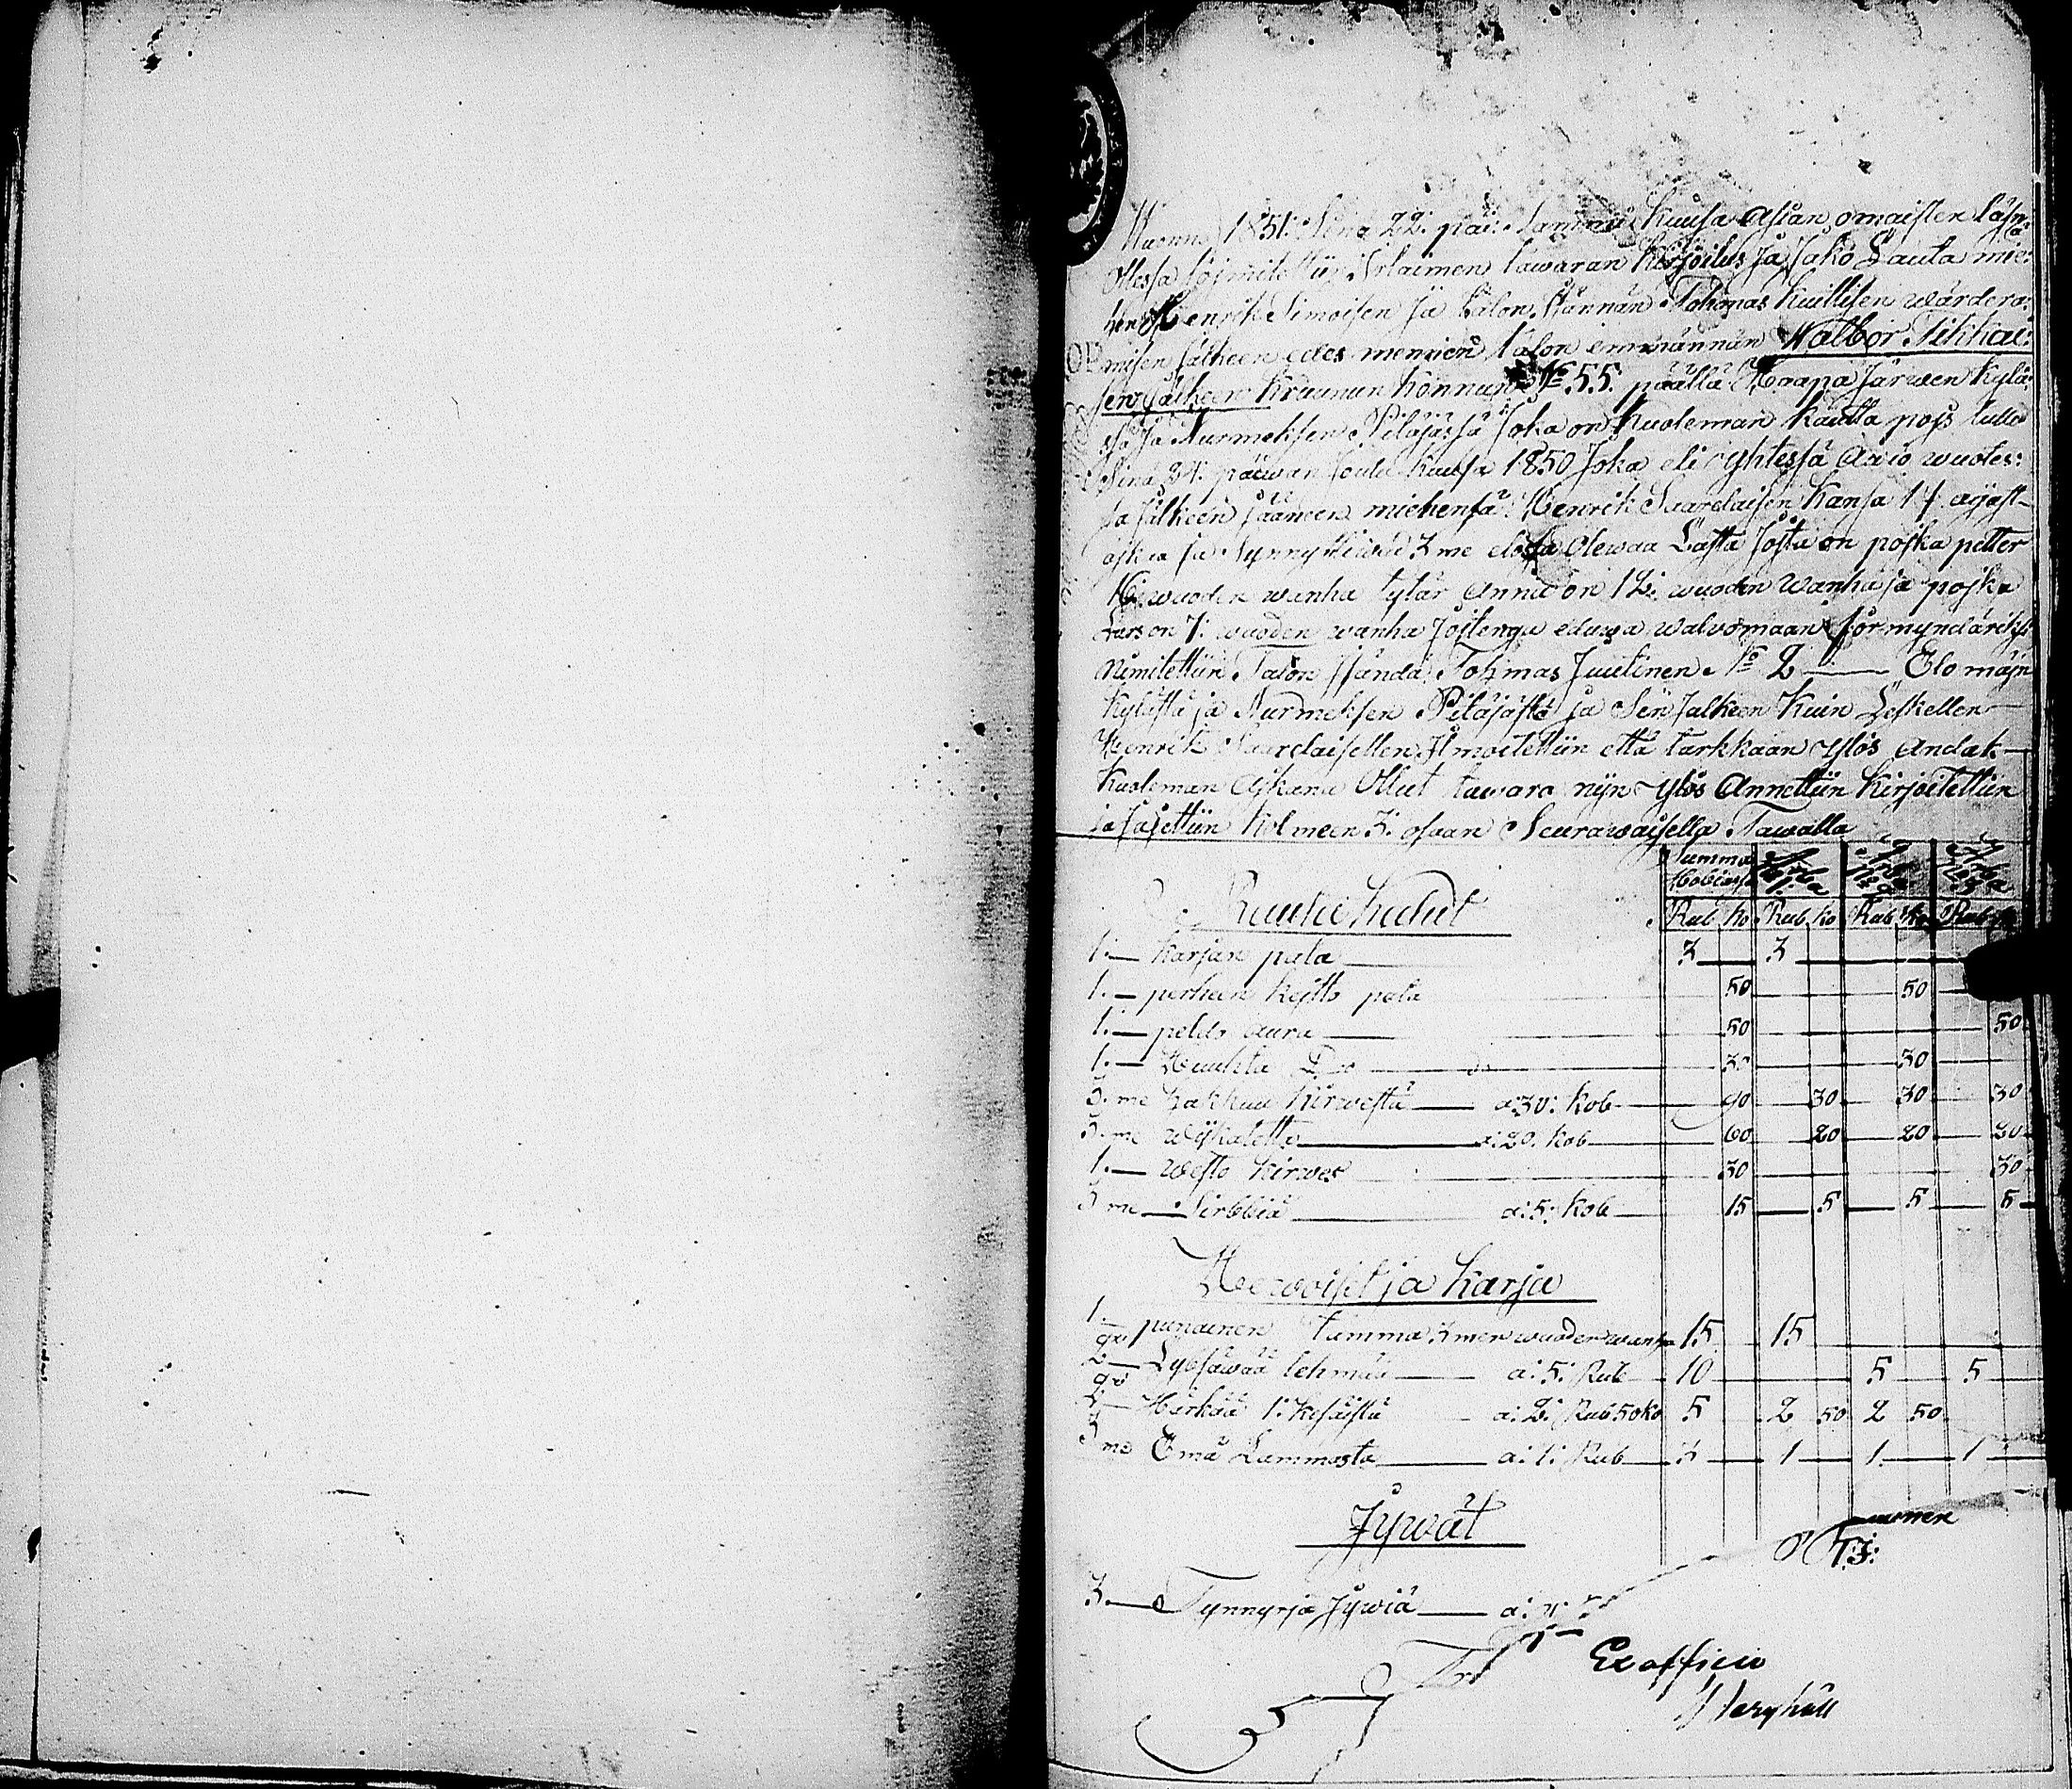 Wuonna 1851: Sinä 22: päi: Tammi Kuusa Asian omaisten läsnä
Ollessa toimitettiin Irtaimen tawaran Kirjoitus Ja Jako Lauta mie:
hen Henrik Simoisen ja talon Isännän Tohmas Kuittisen wärdera:
misen jälkeen edes mennen talon emmännän Walbor Tikkai:
sen Jälkeen Kruunun Könnun No 55: päällä Haapa Järwen Kylä:
ssä Ja Nurmeksen Pitäjässä Joka on Kuoleman Kautta pojs tullu
Sinä 31: päiwän Joulu Kuusa 1850 Joka eli yhtessä Awio wuotes:
sa Jälkeen jääneen miehensä Henrik Saarelaisen Kansa 14 ajast-
ajkaa ja Synnyttiwät 3 me elossa Olewaa Lasta Josta on pojka petter
16: wuoden wanha tytär Anna on 12: wuoden Wanha ja pojka
Lars on 7: wuoden wanha Joitenga eduwa walwomaan förmyndäriks
Nimitettiin Talon Isändä Tohmas Juutinen No 2 — Elo mäjn
Kylästä ja Nurmeksen Pitäjästä ja Sen Jälkeen Kuin Leskellen
Henrik Saarelaisellen Ilmoitettiin että tarkkaan ylös Andak—
Kuoleman Ajkana Ollut tawara nijn ylös Annettiin Kirjoitettiin
ja Jajettiin Kolmeen 3: osaan Seurawaisella Tawalla
Summa
Hobiassa
Rub ko Rub ko Rub ko Rub ko
Rauta Kalut
1:— Karjan pata — 3 — 3
1:— perheen Kejtto pata 50 50
1:— peldo aura — 50 50
1:— Huuhta Do — 30 30
3: me Hakkuu Kirwestä — a: 30: Kob 90 30 30 30
3: me wijkatetta — a: 20: kob 60 20 20 20
1:— westo kirwes 30 30
3 me Sirbbiä — a: 5: Kob 15 5 5 5
Hewoiset ja Karja
1:— punainen tamma 3 men wuoden wanha 15 15
2— Lybsäwää lehmää — a: 5: Rub 10 5 5
2— Härkää 1: kesäistä a: 2: Rub 50 ko 5 2 50 2 50
3 me Emä Lammasta — a: 1: Rub 3 1 1 1
Jywät
T: J:
3.— Tynnyrjä Jywiä — a:
Ex officio